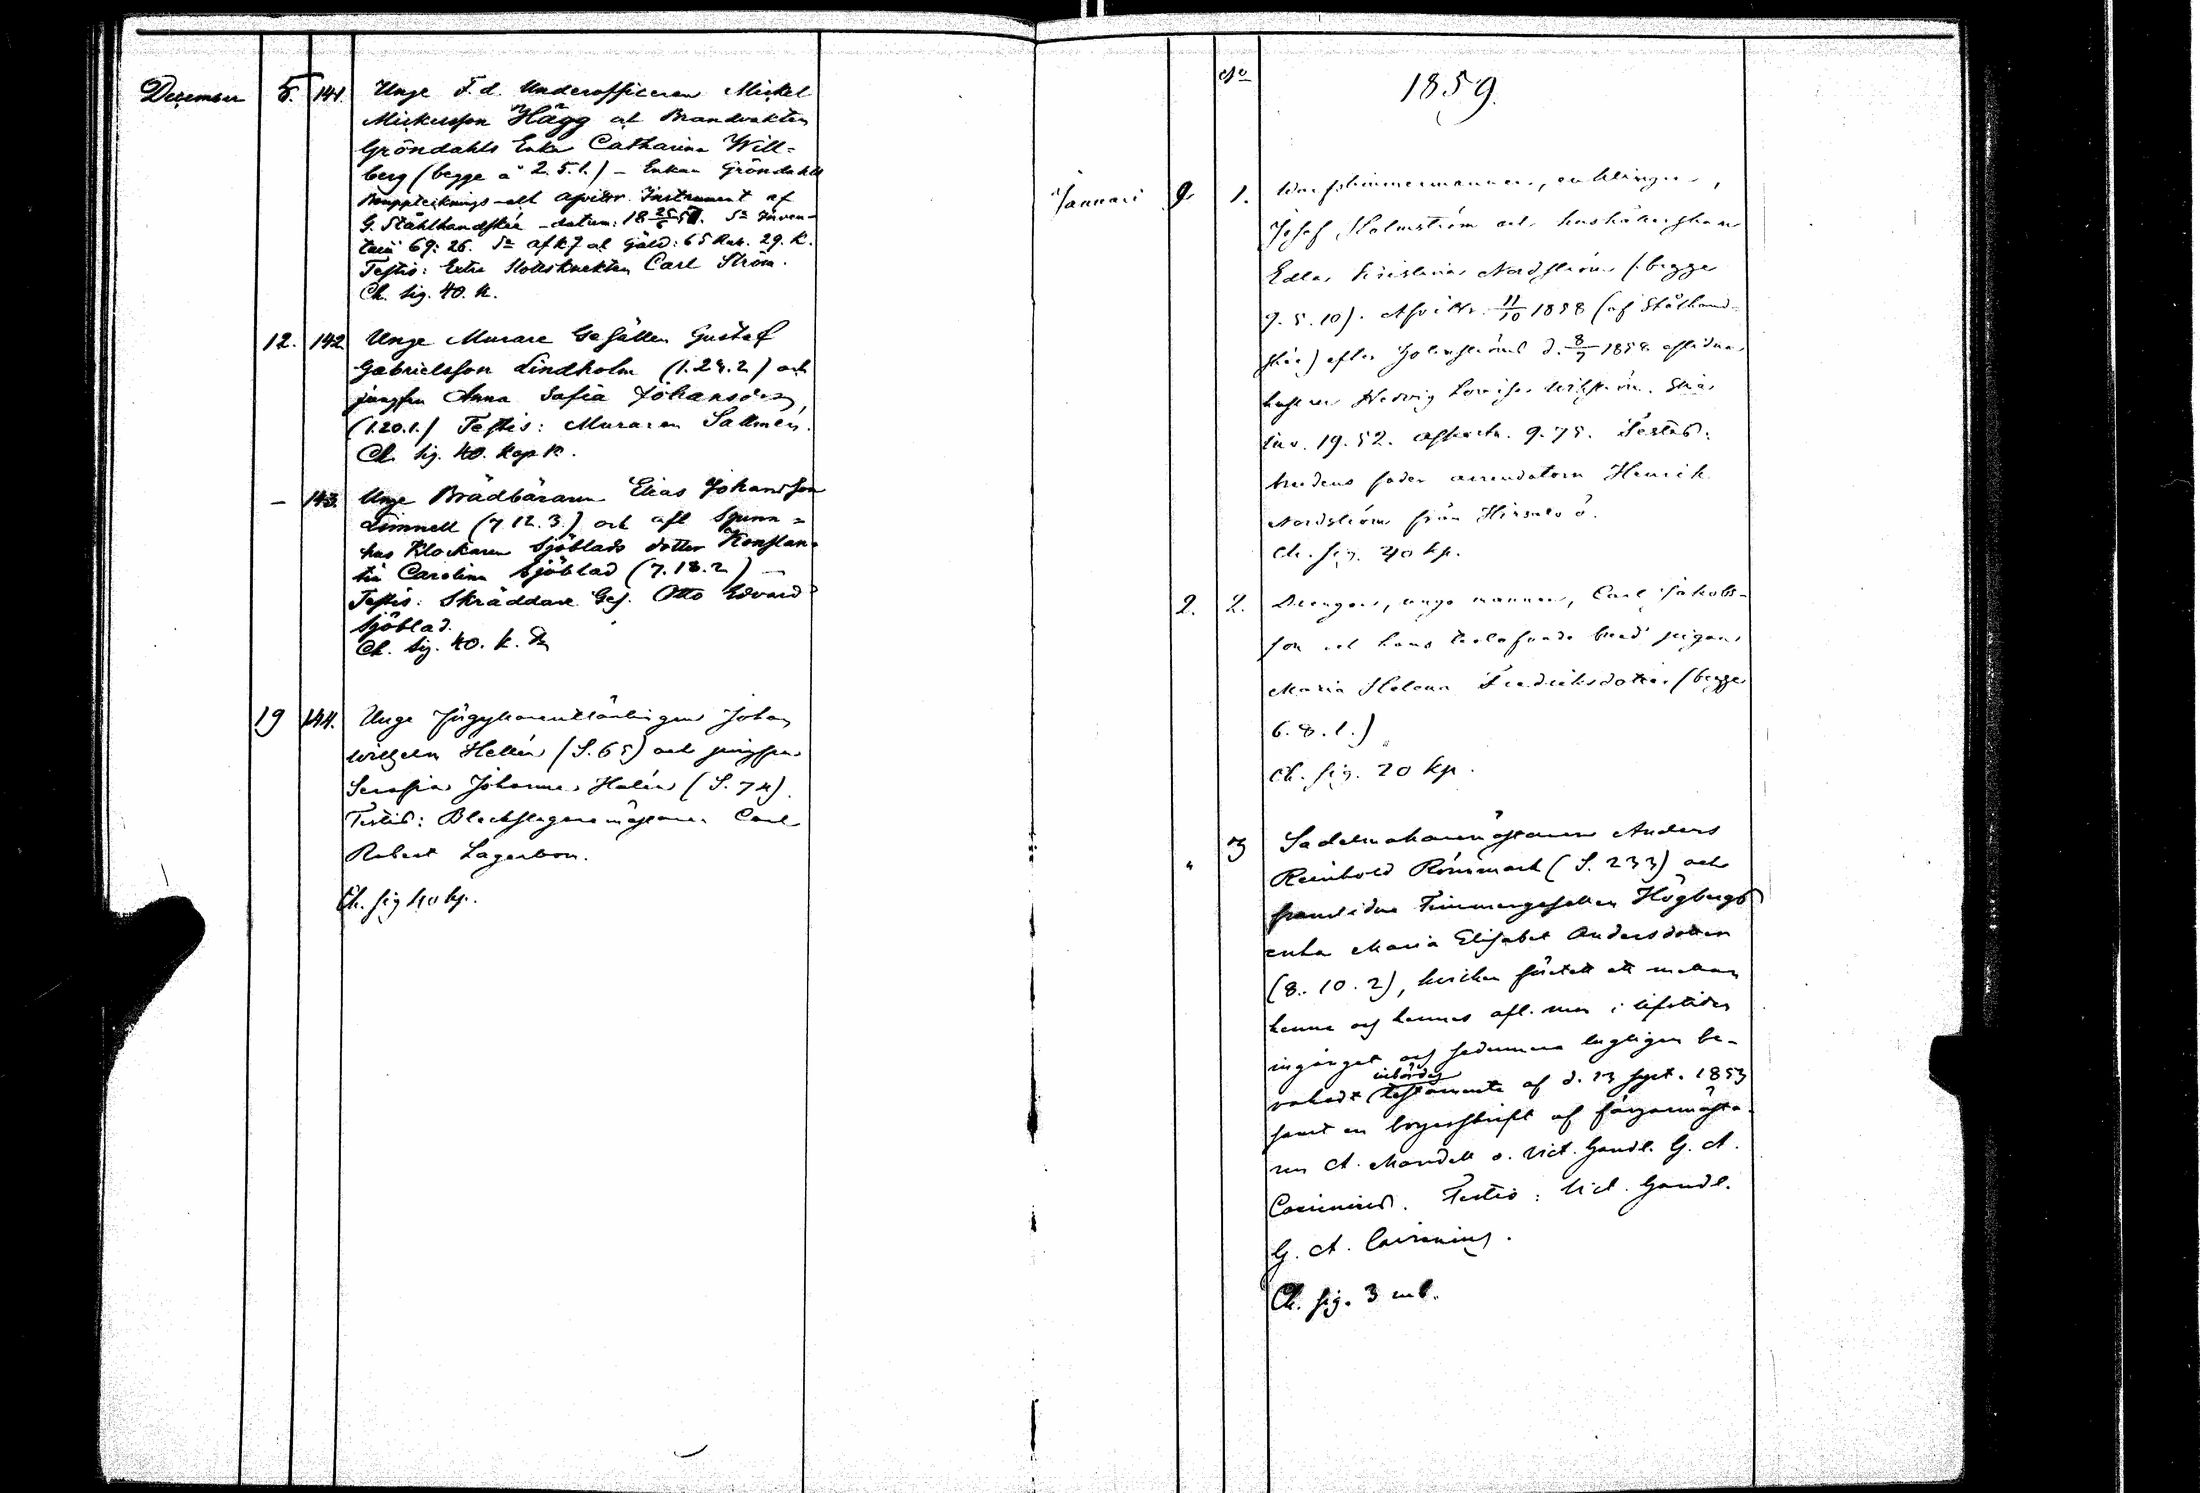 December 5. 141. Unge F. d. Underofficeren Mickel
Mickelsson Hägg at Brandvakten
Gröndahls Enka Catharina Will=
berg (begge a 2. 5. 1.) - Enkan Gröndahls
Bouppteknings-alt Afvittr. Instrument af
G. Stålhandske - datum: 18 25/6 5. Sa Inven-
tarii 69: 26. Sa af K J at Gäld: 65 Rub. 29. K.
Testis: Extra Slottsknekten Carl Ström.
Ch. Sig. 40. K.
12. 142 Unge Murare Gesällen Gustaf
Gabrielsson Lindholm (1.24.2) och
jungfru Anna Sofia Johansdr
(1.20.1.) Testis: Muraren Sallmén.
Ch. Sig. 40. Kop K.
- 143. Unge Brädbäraren Elias Johansson
Limnell (7 12. 3.) och afl Spinn=
hus Klockaren Sjöblads dotter Konstan-
tia Carolina Sjöblad (7. 18. 2) -
Testis: Skräddare Ges. Otto Edvard
Sjöblad.
Ch. Sig. 40. K.
19 144. Unge Johan
Wilhelm Hellén (S. 65) och jungfru
Serafia Johanna Halén (S. 74).
Testis: Blechslagaremästaren Carl
Robert Lagerbom.
Ch. sig 40 kp.
No 1859.
Januari 2 1. enklingen,
Josef Holmström och hushållerskan
Edla Kristina Nordström (begge
9. 5. 10). Afvittr. 11/10 1858 (af Stålhand-
ske) efter Holmströms d. 8/7 1858 aflidna
hustru Hedvig Lovisa
inv. 19. 52. 9. 75. Testis:
brudens fader arrendatorn Henrik
Nordström från Hirsalo ö.
Ch. sig. 40 kp.
2. 2. Drengen, unge mannen, Carl Jakobs-
son och hans trolofvade brud pigan
Maria Helena Fredriksdotter (begge
6. 8. 1.)
Ch. sig. 20 kp.
" 3 Sadelmakaremästaren Anders
Reinhold Rönnmark (S. 233) och
framlidne Timmergesällen Högbergs
enka Maria Elisabet Andersdotter
(8. 10. 2), hvilken företett ett mellan
henne och hennes afl. man i lifstiden
ingånget och sedermera lagligen be-
vakadt inbördes testamente af d. 23 Sept. 1853
samt en borgesskrift af färgaremästa-
ren A. Mandell o. Vict. Handl. G. A.
Testis: Vict. Handl.
G. A.
Ch. sig. 3 rub.